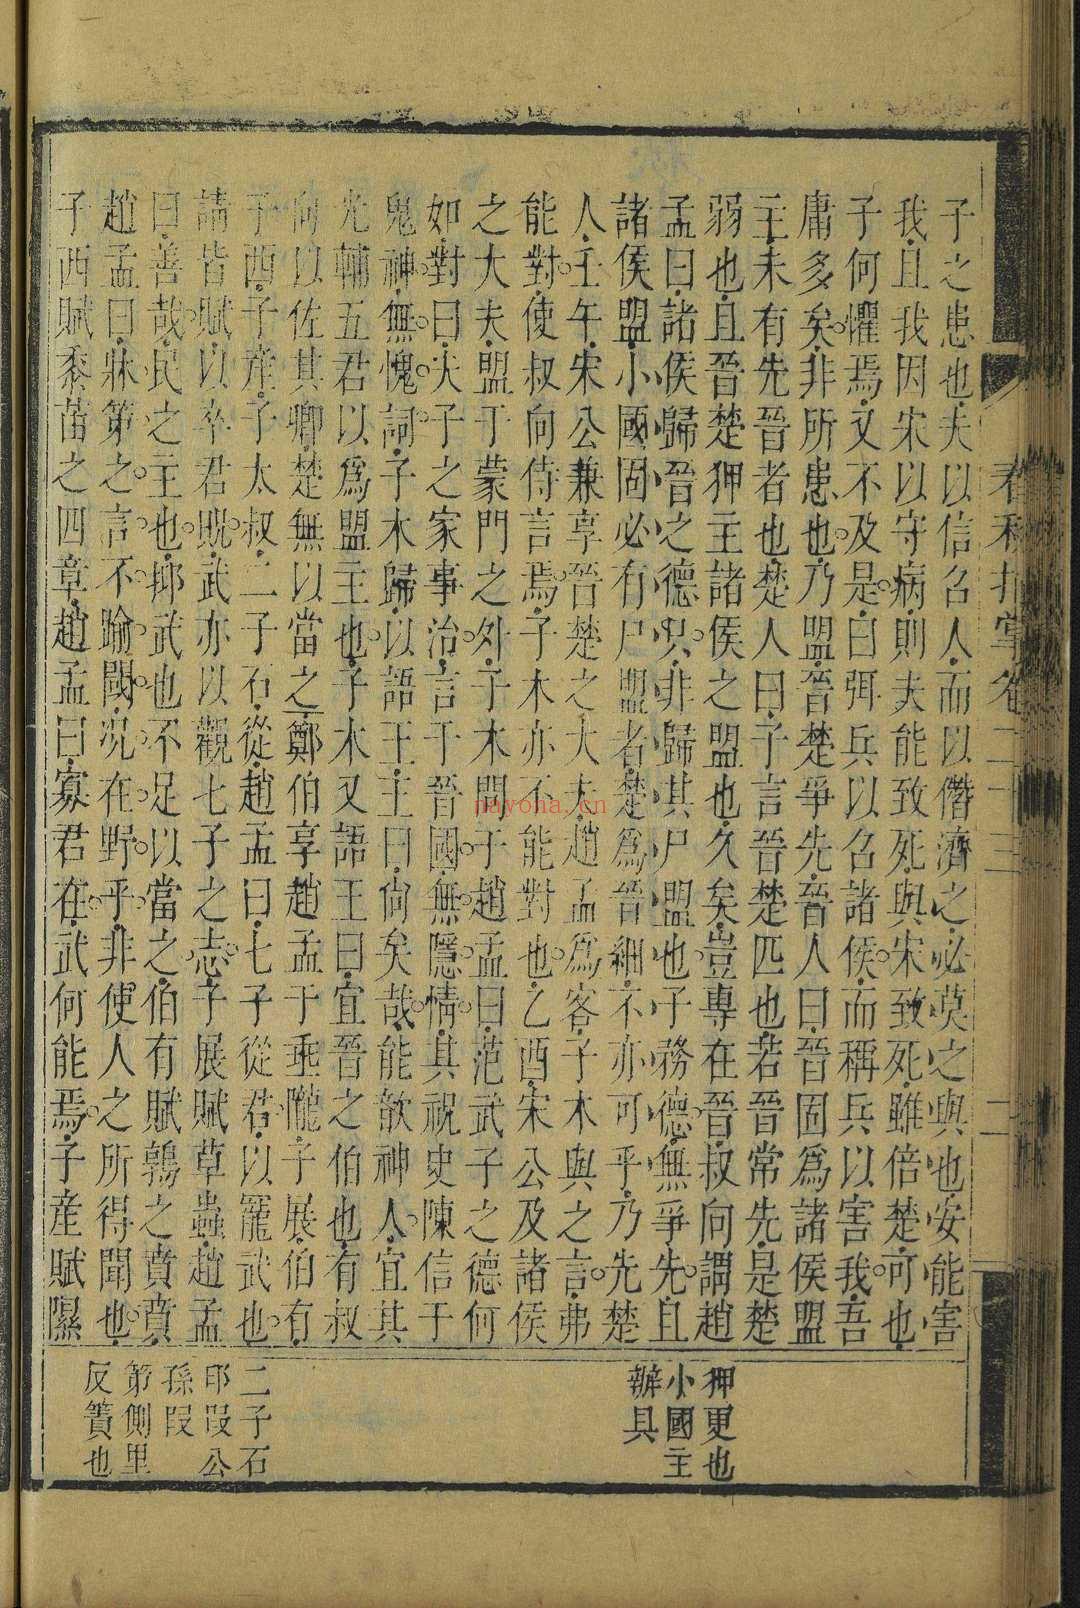 子之患也夫以信召人而以僭濟之必莫之與也安能害
我且我因宋以守病則夫能致死與宋致死雖倍楚可也
子何懼焉又不及是曰弭兵以召諸侯而稱兵以害我吾
庸多矣非所患也乃盟晉楚爭先晉人曰晉固爲諸侯盟
主未有先晉者也楚人曰子言晉楚匹也若晉常先是楚
弱也且晉楚狎主諸侯之盟也久矣豈專在晉叔向謂趙
孟曰諸侯歸晉之德只非歸其尸盟也子務德無爭先且
諸侯盟小國固必有尸盟者楚爲晉細不亦可乎乃先楚
人壬午宋公兼享晉楚之大夫趙孟爲客子木與之言弗
能對使叔向侍言焉子木亦不能對也乙酉宋公及諸侯
之大夫盟于蒙門之外子木問于趙孟曰范武子之德何
如對曰夫子之家事治言于晉國無隱情其祝史陳信于
鬼神無愧詞子木歸以語王王曰尙矣哉能歆神人宜其
光輔五君以爲盟主也子木又語王曰宜晉之伯也有叔
向以佐其卿楚無以當之鄭伯享趙孟于垂隴子展伯有
子西子產子太叔二子石從趙孟曰七子從君以寵武也
請皆賦以卒君貺武亦以觀七子之志子展賦草蟲趙孟
曰善哉民之主也抑武也不足以當之伯有賦鶉之賁賁
趙孟曰牀第之言不踰閾況在野乎非使人之所得聞也
子西賦黍苗之四章趙孟曰寡君在武何能焉子産賦隰
狎更也
小國主
辦具
二子石
印段公
孫段
第側里
反簀也
春秋指掌卷二十三
二
nayona.cn